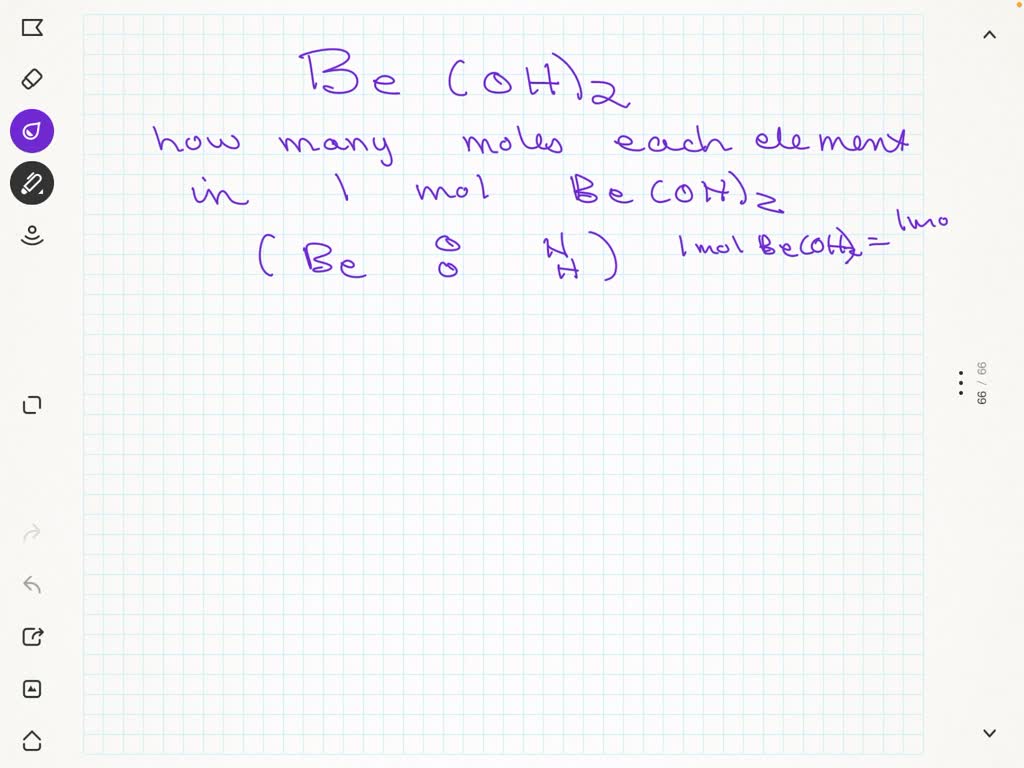 Be (OH)2
how many moles each element
in 1 mol Be(OH)2
(Be O H) 1mol Be(OH)2 = 1mo
O H
66 / 66